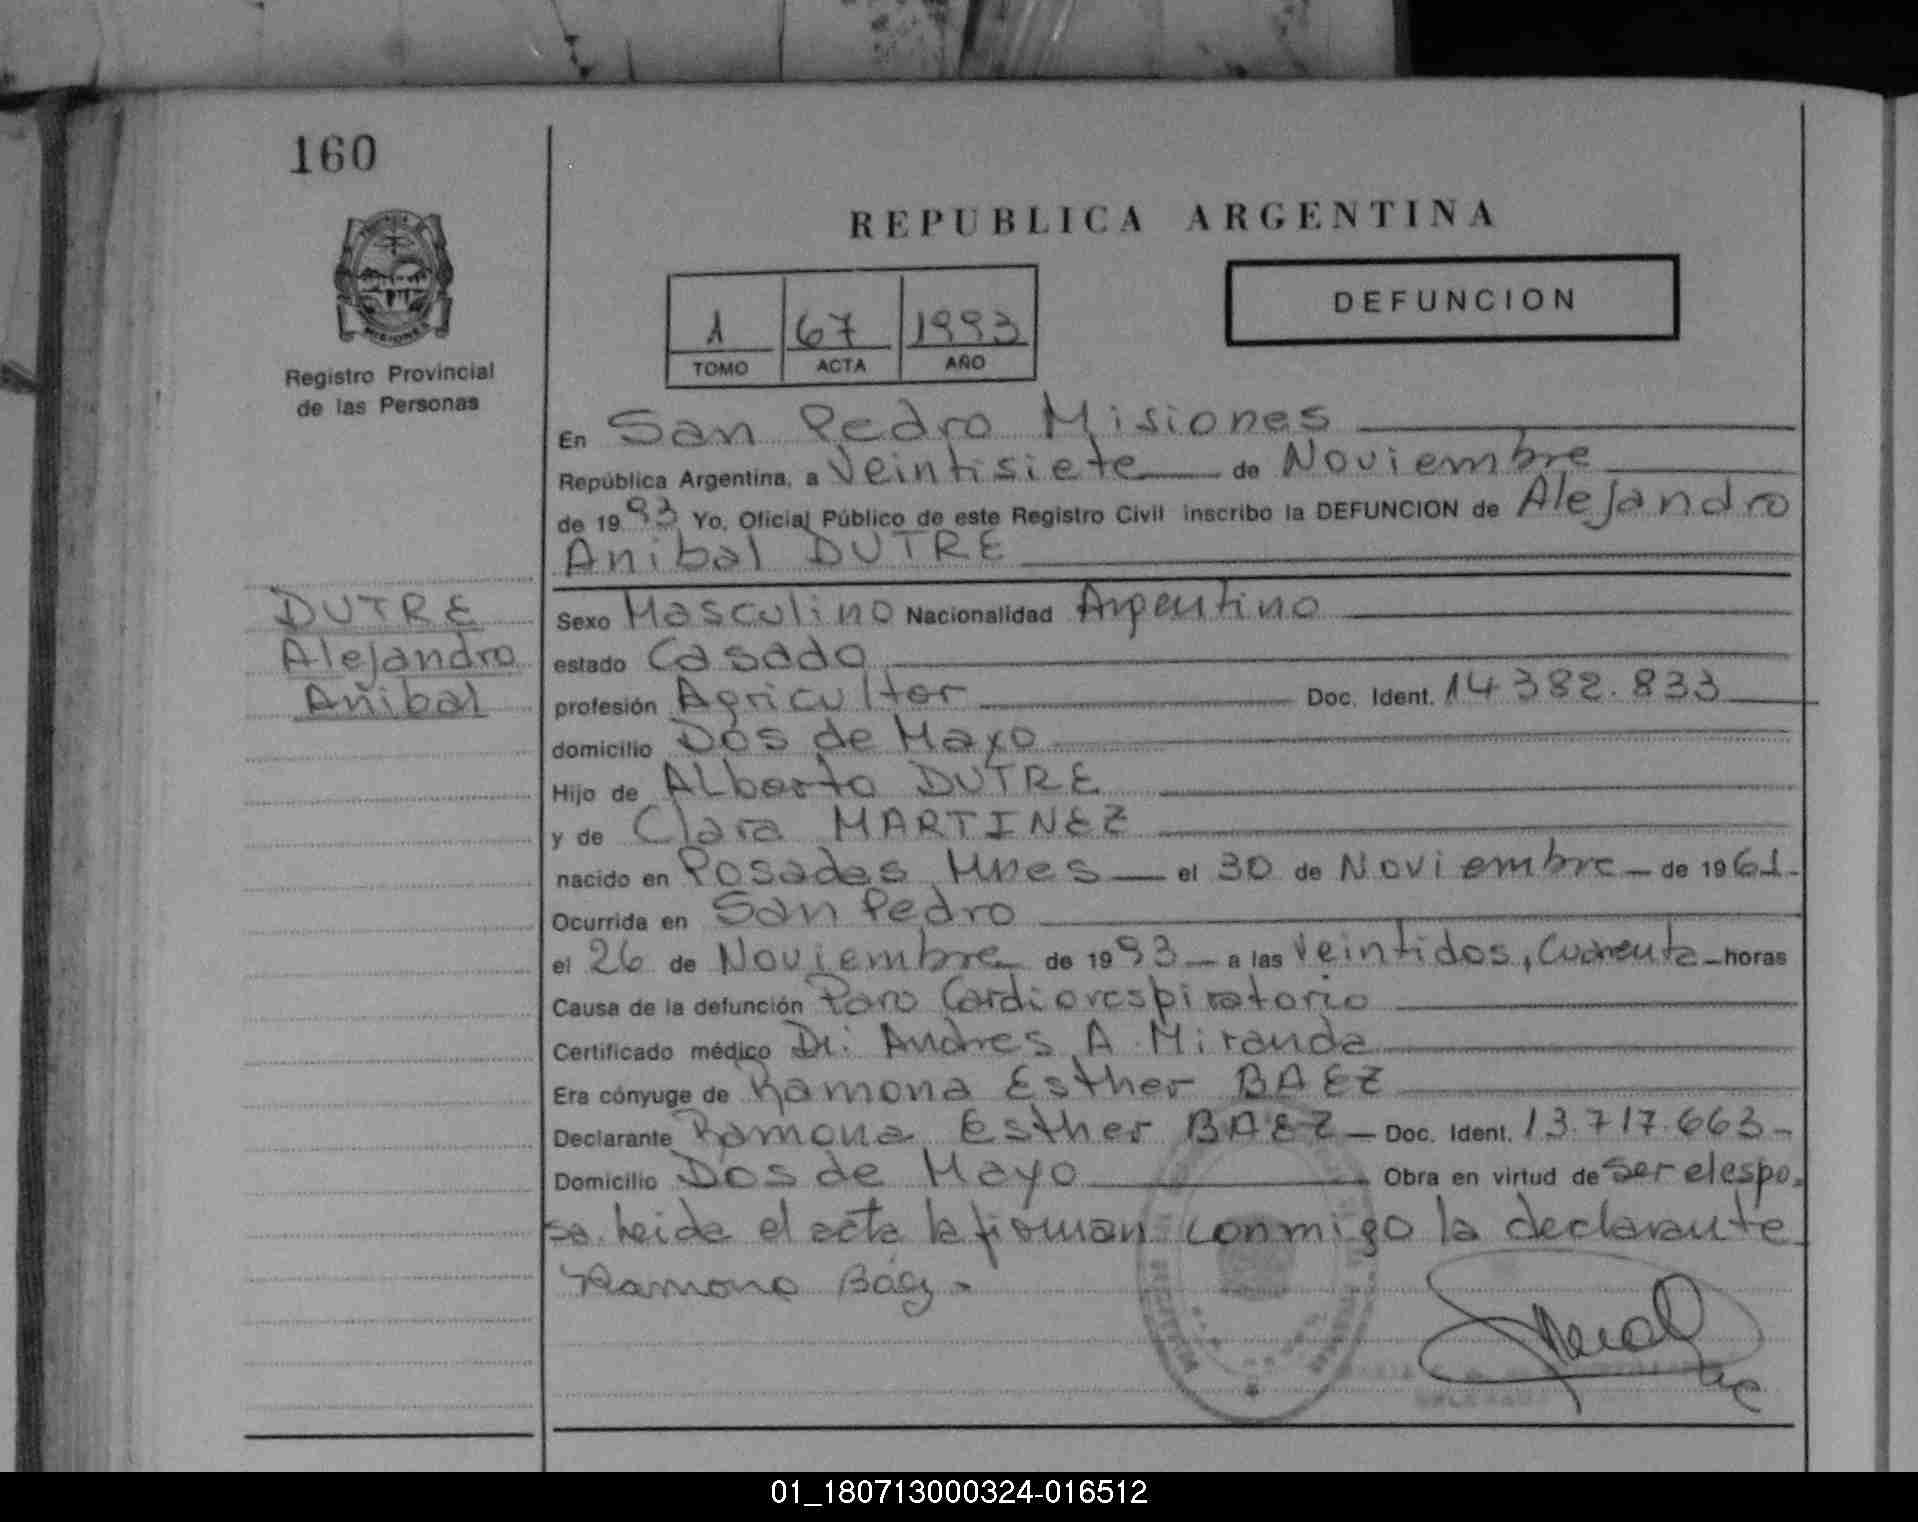 160
REPUBLICA ARGENTINA
MISIONES
Registro Provincial
de las Personas
1 67 1993
TOMO ACTA AÑO
DEFUNCION
En San Pedro Misiones
República Argentina, a Veintisiete de Noviembre
de 1993 Yo, Oficial Público de este Registro Civil inscribo la DEFUNCION de Alejandro
Anibal DUTRE
DUTRE
Alejandro
Anibal
Sexo Masculino Nacionalidad Argentino
estado Casado
profesión Agricultor Doc. Ident. 14.382.833
domicilio Dos de Mayo
Hijo de ALberto DUTRE
y de Clara MARTINEZ
nacido en Posadas Mnes el 30 de Noviembre de 1961
Ocurrida en San Pedro
el 26 de Noviembre de 1993 a las Veintidos, Cuarenta horas
Causa de la defunción Paro Cardiorespiratorio
Certificado médico Dr. Andres A. Miranda
Era cónyuge de Ramona Esther BAEZ
Declarante Ramona Esther BAEZ Doc. Ident. 13.717.663
Domicilio Dos de Mayo Obra en virtud de ser el espo-
sa. Leida el acta la firman conmigo la declarante
Ramona Báez
01_180713000324-016512